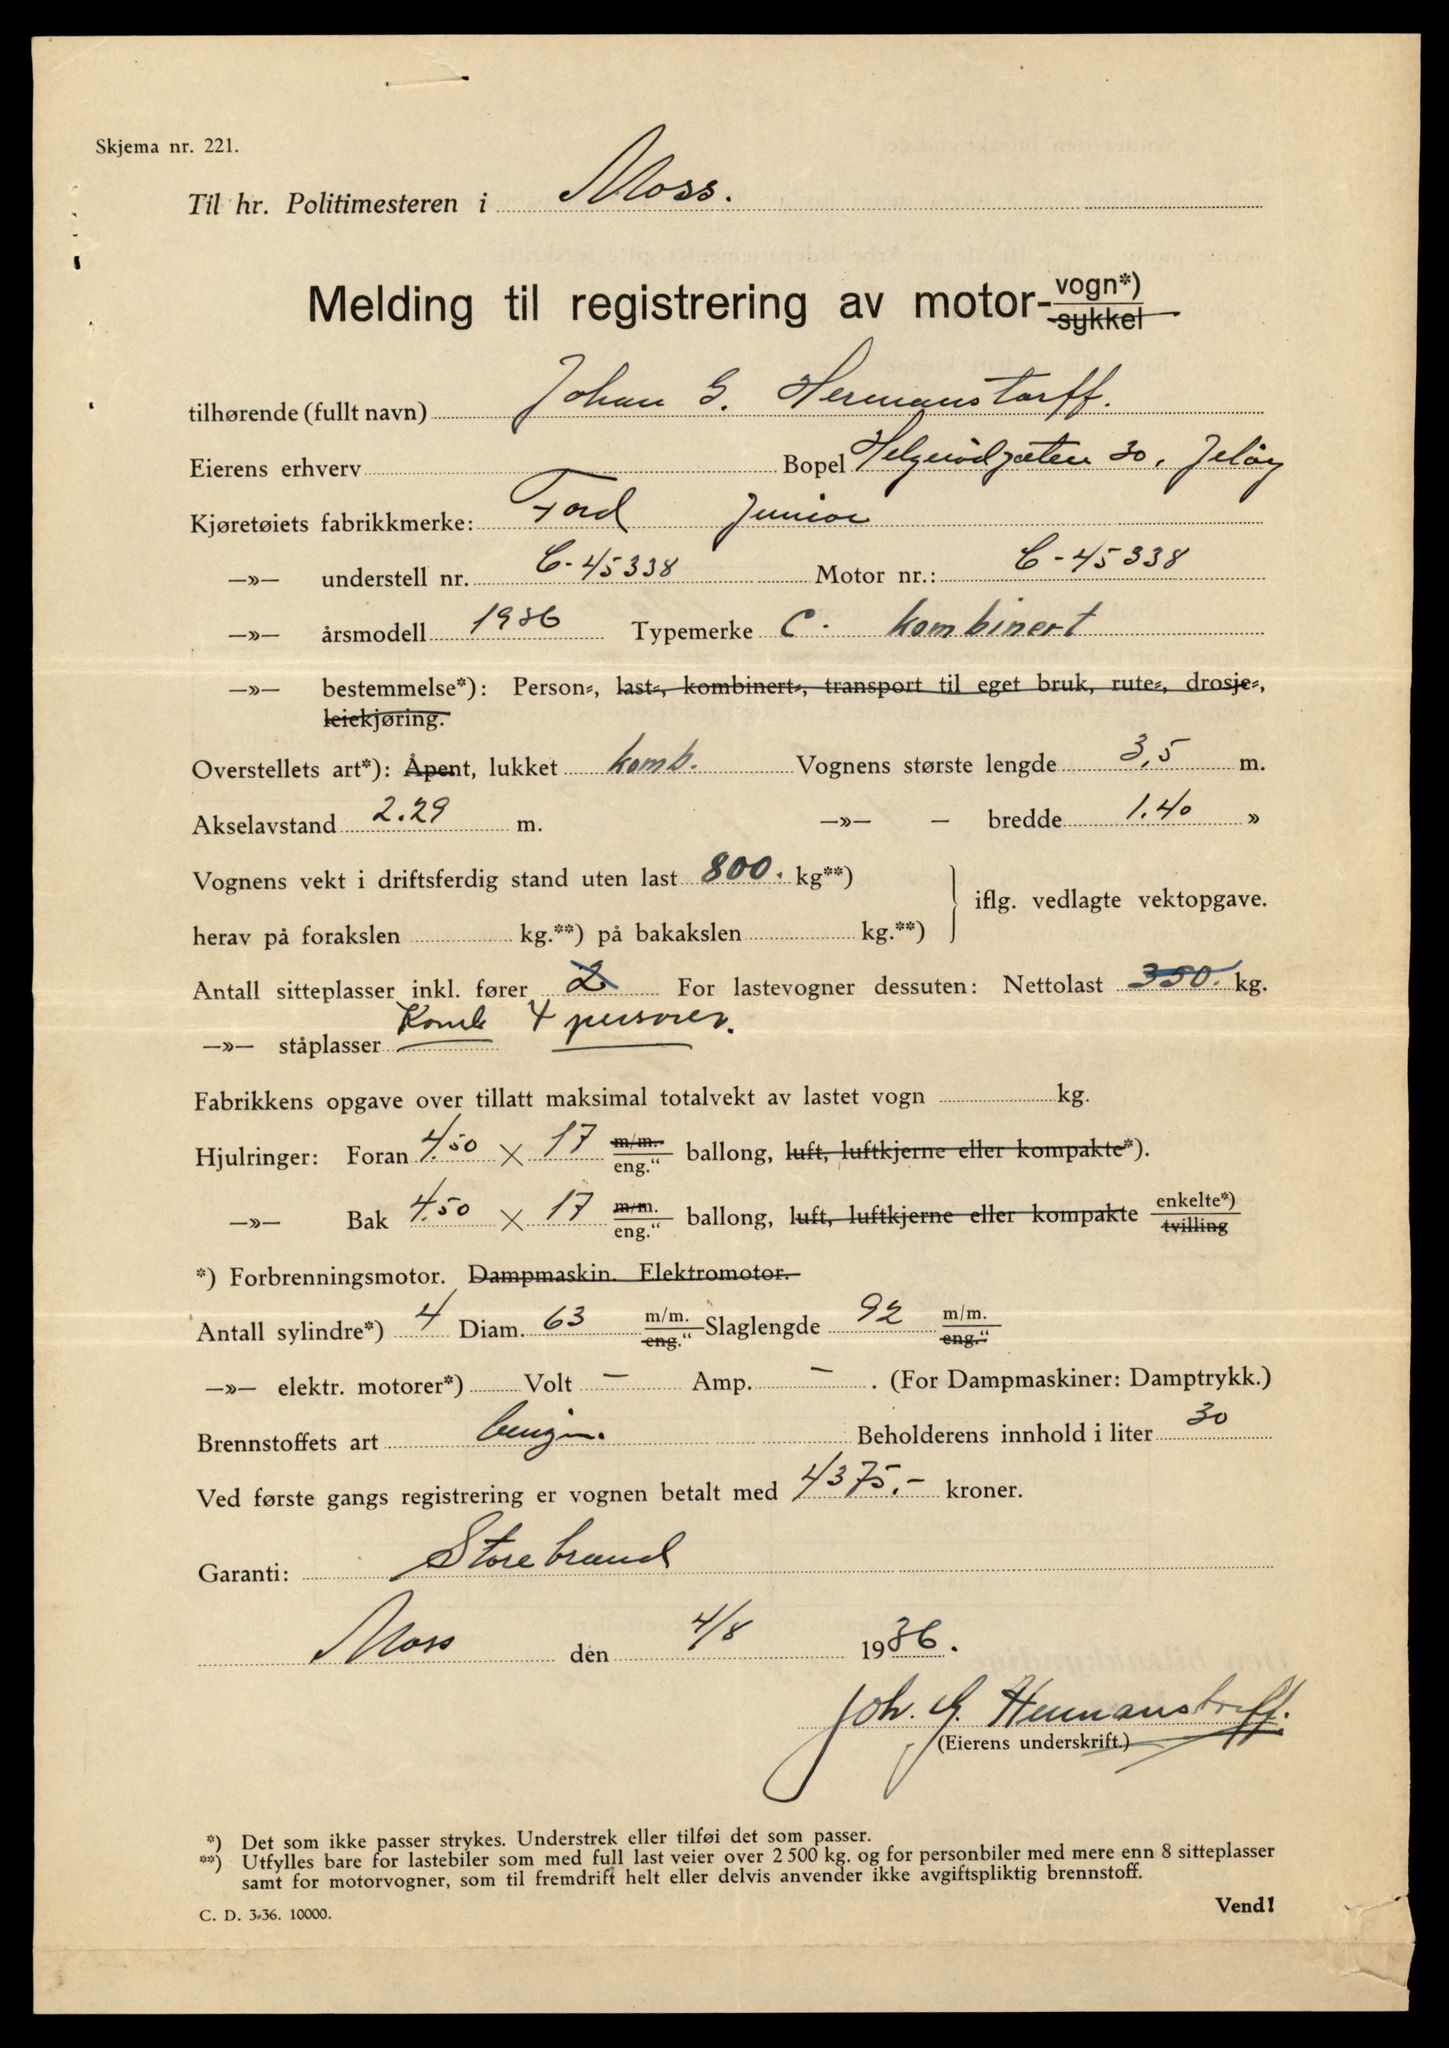 Skjema nr. 221.
Til hr. Politimesteren i Moss.
Melding til registrering av motor-vogn*)
sykkel
tilhørende (fullt navn) Johan G. Hermanstorff.
Eierens erhverv Bopel Helgerødgaten 30, Jeløy
Kjøretøiets fabrikkmerke: Ford Junior
—»— understell nr. C-45338 Motor nr.: C-45338
—»— årsmodell 1936 Typemerke C. kombinert
—»— bestemmelse*): Person-, last-, kombinert-, transport til eget bruk, rute-, drosje-,
leiekjøring.
Overstellets art*): Åpent, lukket komb. Vognens største lengde 3,5 m.
Akselavstand 2.29 m. —»— — bredde 1.40 »
Vognens vekt i driftsferdig stand uten last 800. kg**)
iflg. vedlagte vektopgave.
herav på forakslen kg.**) på bakakslen kg.**)
Antall sitteplasser inkl. fører 2 For lastevogner dessuten: Nettolast 350. kg.
—»— ståplasser Komb 4 personer.
Fabrikkens opgave over tillatt maksimal totalvekt av lastet vogn kg.
Hjulringer: Foran 4.50 × 17 m/m. eng." ballong, luft, luftkjerne eller kompakte*).
—»— Bak 4.50 × 17 m/m. eng." ballong, luft, luftkjerne eller kompakte enkelte*) tvilling
*) Forbrenningsmotor. Dampmaskin. Elektromotor.
Antall sylindre*) 4 Diam. 63 m/m. eng." Slaglengde 92 m/m. eng."
—»— elektr. motorer*) Volt — Amp. — . (For Dampmaskiner: Damptrykk.)
Brennstoffets art bensin. Beholderens innhold i liter 30
Ved første gangs registrering er vognen betalt med 4375.- kroner.
Garanti: Storebrand
Moss den 4/8 1936.
Joh. G. Hermanstorff.
(Eierens underskrift.)
*) Det som ikke passer strykes. Understrek eller tilføi det som passer.
**) Utfylles bare for lastebiler som med full last veier over 2 500 kg. og for personbiler med mere enn 8 sitteplasser
samt for motorvogner, som til fremdrift helt eller delvis anvender ikke avgiftspliktig brennstoff.
C. D. 3-36. 10000.
Vend!